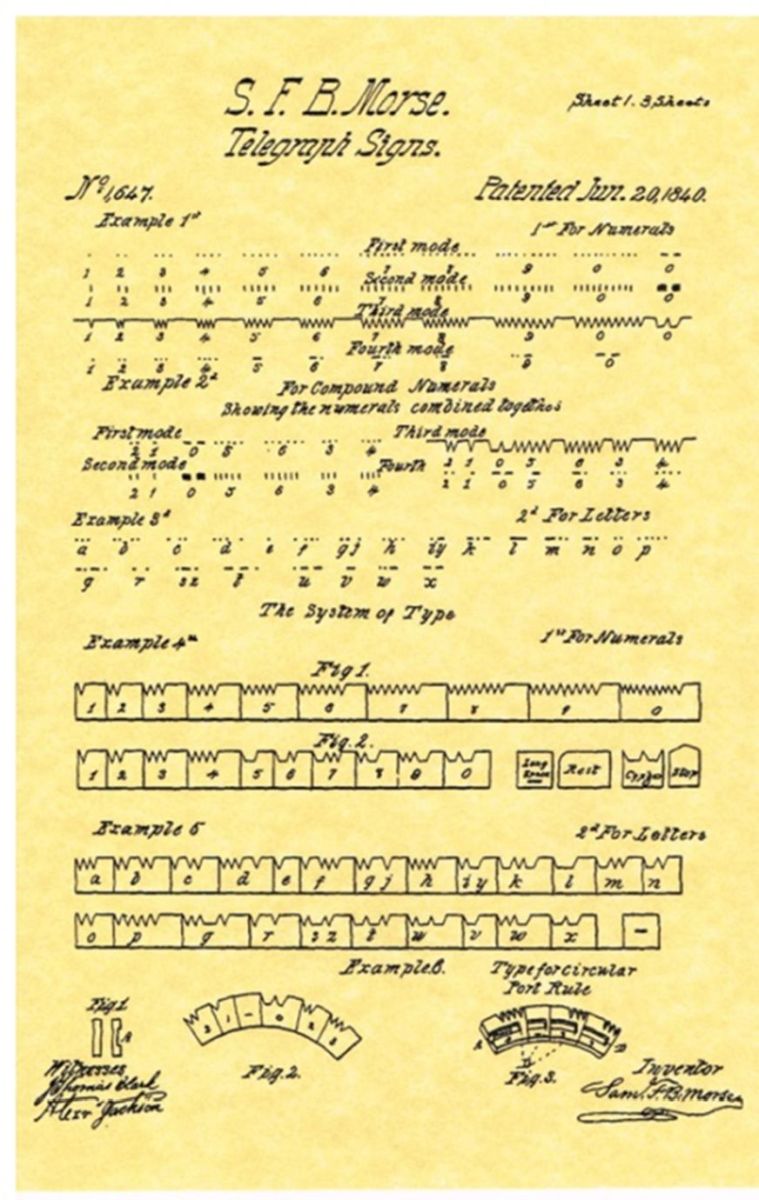 S. F. B. Morse.
Sheet 1. 3 Sheets
Telegraph Signs.
No 1,647.
Patented Jun. 20, 1840.
Example 1st
1st For Numerals
First mode
1 2 3 4 5 6 7 8 9 0 0
Second mode
1 2 3 4 5 6 7 8 9 0 0
Third mode
1 2 3 4 5 6 7 8 9 0 0
Fourth mode
1 2 3 4 5 6 7 8 9 0
Example 2d
For Compound Numerals
Showing the numerals combined together
First mode
2 1 0 5 6 3 4
Third mode
2 1 0 5 6 3 4
Second mode
2 1 0 5 6 3 4
Fourth
2 1 0 5 6 3 4
Example 3d
2d For Letters
a b c d e f gj h iy k l m n o p
q r sz t u v w x
The System of Type
Example 4th
1st For Numerals
Fig 1.
1 2 3 4 5 6 7 8 9 0
Fig. 2.
1 2 3 4 5 6 7 8 9 0 Long Space Rest Cypher Stop
Example 5
2d For Letters
a b c d e f gj h iy k l m n
o p q r sz t u v w x -
Example 6.
Type for circular
Port Rule
Fig 1.
A
2 1 - 0
Fig. 2.
Fig. 3.
Witnesses
Thomas Clark
Alexr Jackson
Inventor
Sam. F. B. Morse